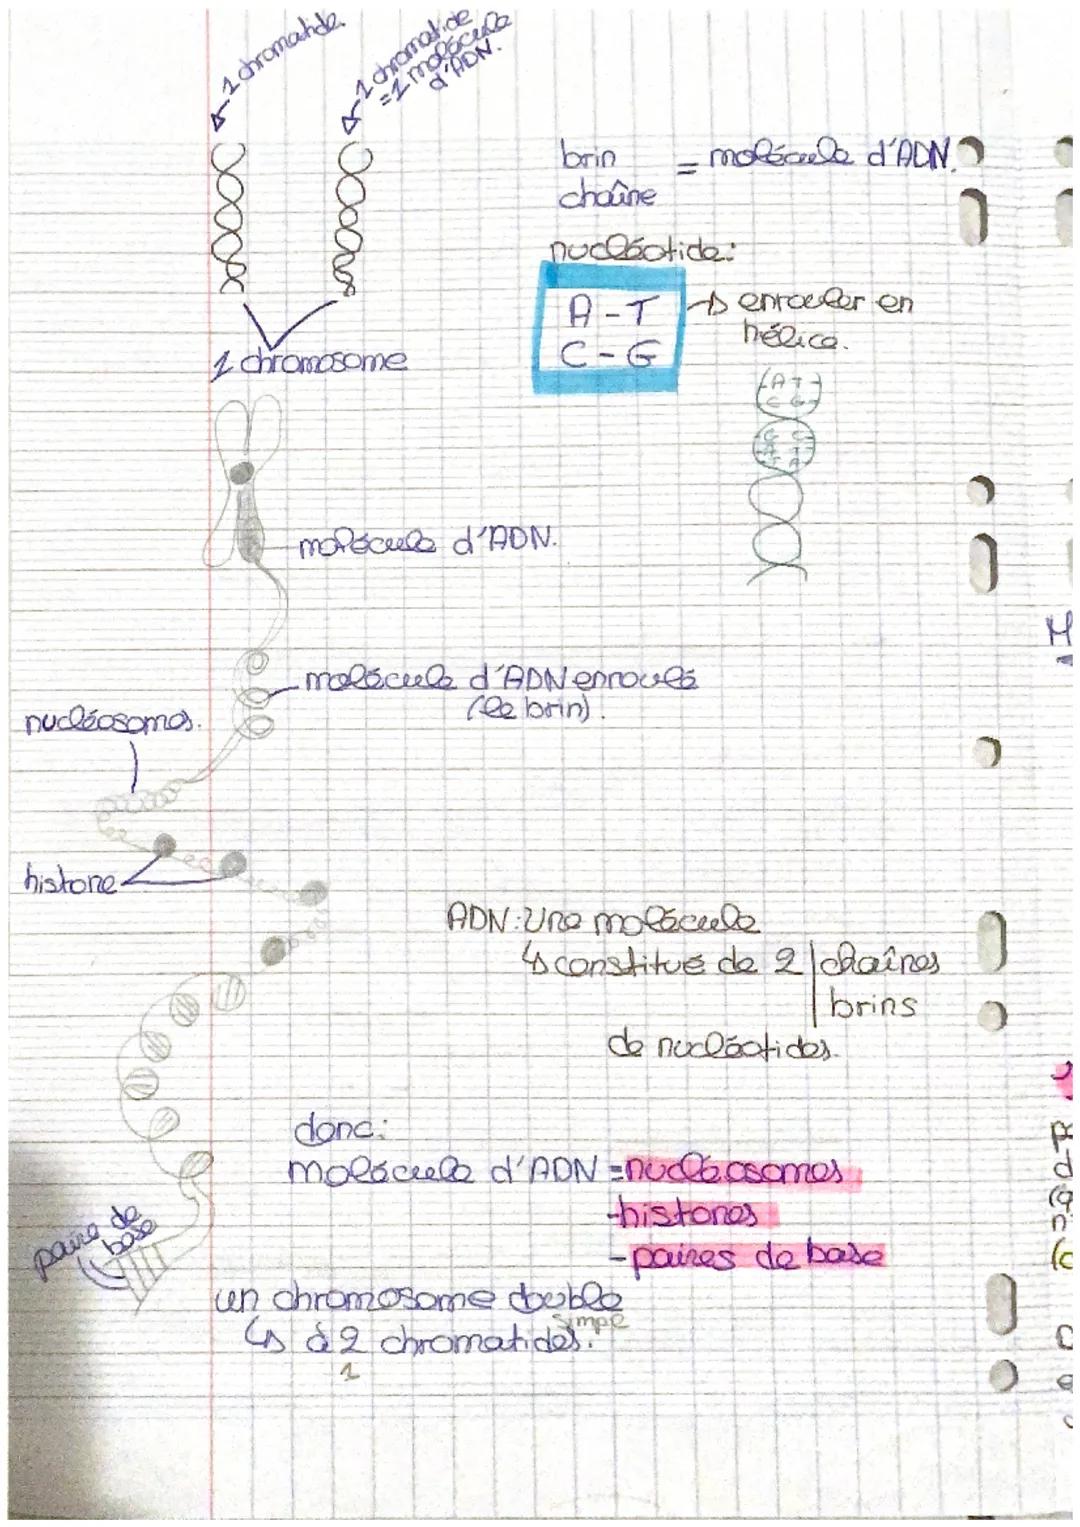 1 chromatide.
1 chromatide
=1 molécule
d'ADN.
1 chromosome
brin
chaîne
= molécule d'ADN.
nucléotide:
A-T
C-G
enrouler en
hélice.
A T
C G
G C
A T
T A
molécule d'ADN.
molécule d'ADN enroulé
(le brin).
nucléosomes.
histone
ADN: Une molécule
↳ constitué de 2 chaînes
brins
de nucléotides.
donc:
molécule d'ADN = nucléosomes
-histones
-paires de base
paire de
base
un chromosome double
simple
↳ à 2 chromatides.
1